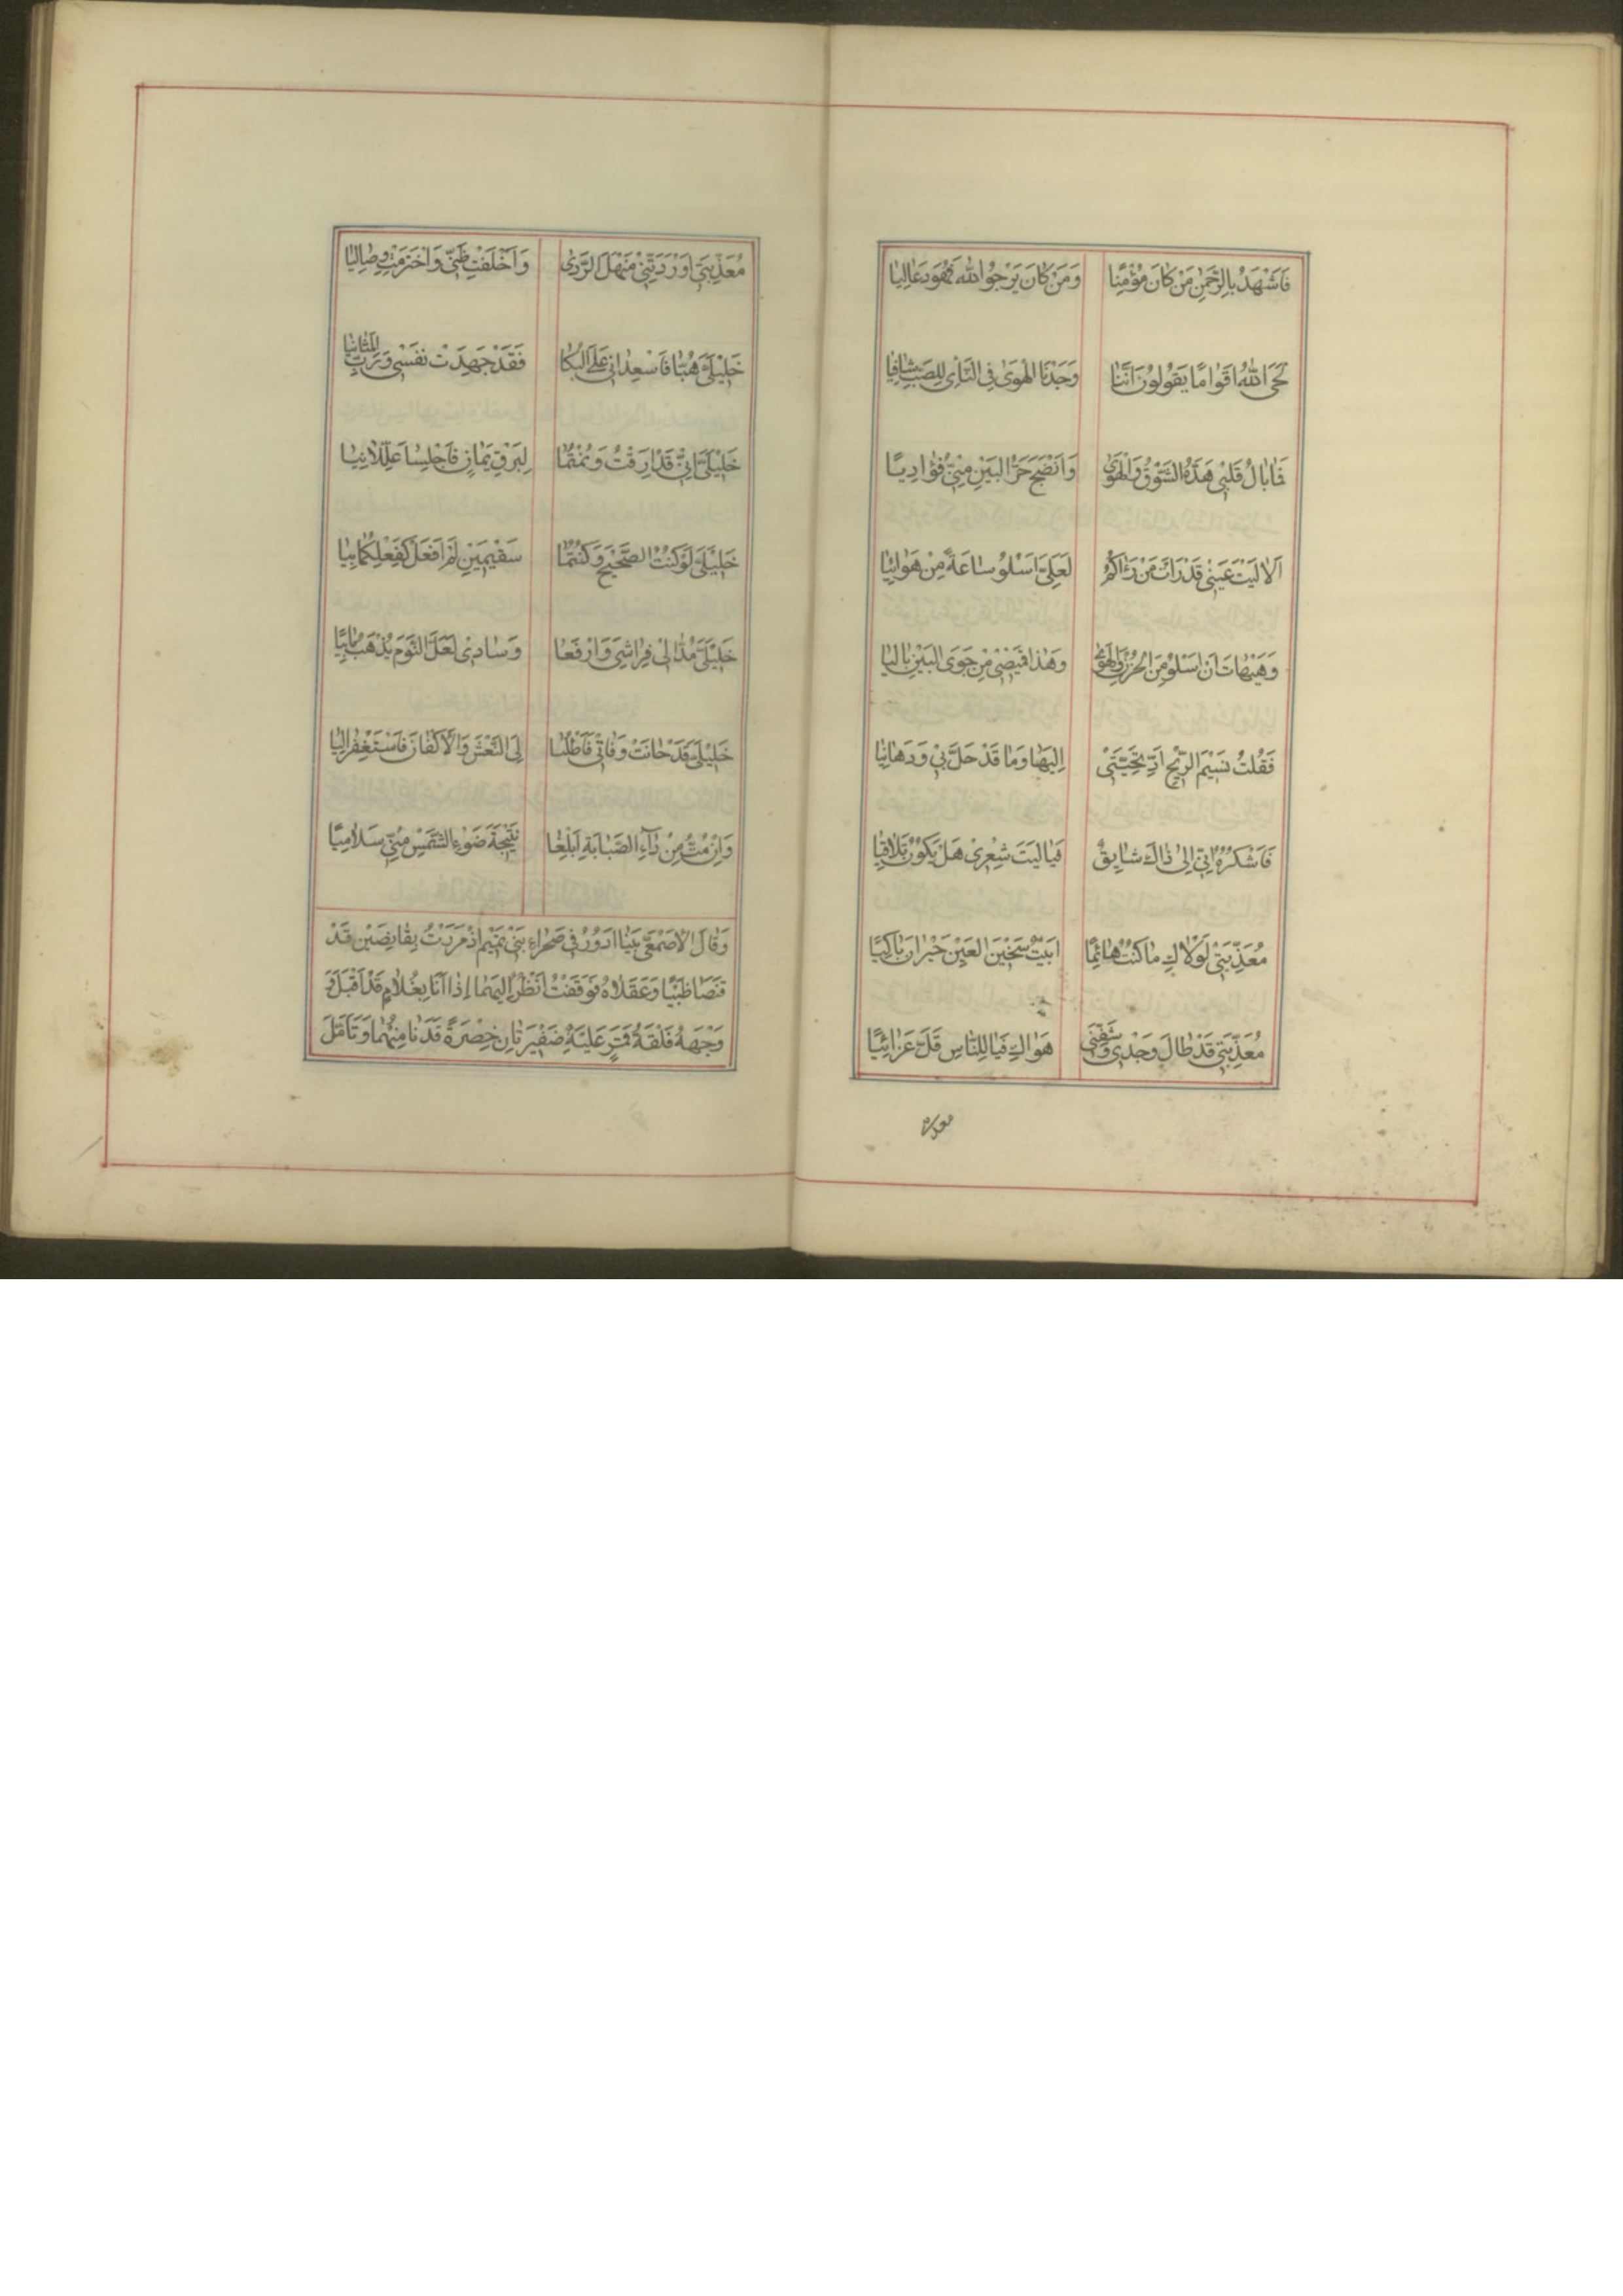 فَاَشْهَدُ بِالرَّحْمٰنِ مَنْ كَانَ مُؤْمِنًا وَمَنْ كَانَ يَرْجُو اللّٰهَ فَهُوَ دَعَالِيَا
لَحَى اللّٰهُ اَقْوَامًا يَقُولُونَ اَنَّنَا وَجَدْنَا الْهَوٰى فِى النَّاْىِ لِلصَّبِّ شَافِيَا
فَابَالُ قَلْبِى هَدَّهُ الشَّوْقُ وَالْهَوٰى وَاَنْضَجَ حَرُّ الْبَيْنِ مِنِّى فُؤَادِيَا
اَلَا لَيْتَ عَيْنِى قَدْ رَاَتْ مَنْ رَاٰكُمُ لَعَلِّىَ اَسْلُو سَاعَةً مِنْ هَوَائِيَا
وَهَيْهَاتَ اَنْ اَسْلُو مِنَ الْحُزْنِ وَالْهَوٰى وَهٰذَا قَمِيْصِى مِنْ جَوَى الْبَيْنِ بَالِيَا
فَقُلْتُ نَسِيْمَ الرِّيْحِ اَدِّ تَحِيَّتِى اِلَيْهَا وَمَا قَدْ حَلَّ بِى وَدَهَانِيَا
فَاَشْكُرُهُ اِنِّى اِلٰى ذَاكَ شَايِقٌ فَيَا لَيْتَ شِعْرِى هَلْ يَكُوْنُ تَلَاقِيَا
مُعَذِّبَتِى لَوْلَاكِ مَا كُنْتُ هَائِمًا اَبِيْتُ سَخِيْنَ الْعَيْنِ حَيْرَانَ بَاكِيًا
مُعَذِّبَتِى قَدْ طَالَ وَجْدِى وَشَفَّنِى هَوَاكِ فَيَا لِلنَّاسِ قَلَّ عَزَائِيًا
مُعَذِّبَتِى اَوْرَدْتِنِى مَنْهَلَ الرَّدٰى وَاَخْلَفْتِ ظَنِّى وَاخْتَرَمْتِ وِصَالِيَا
خَلِيْلَىَّ هُبَّا فَاَسْعِدَانِى عَلَى الْبُكَا فَقَدْ جَهِدَتْ نَفْسِى وَرَبِّ الْمَثَانِيَا
خَلِيْلَىَّ اِنِّى قَدْ اَرِقْتُ وَنُمْتُمَا لِبَرْقٍ يَمَانٍ فَاَجْلِسَا عَلِّلَانِيَا
خَلِيْلَىَّ لَوْ كُنْتُ الصَّحِيْحَ وَكُنْتُمَا سَقِيْمَيْنِ لَمْ اَفْعَلْ كَفِعْلِكُمَا بِيَا
خَلِيْلَىَّ مُدَّا لِى فِرَاشِىَ وَارْفَعَا وَسَادِى لَعَلَّ النَّوْمَ يُذْهِبُ مَابِيًا
خَلِيْلَىَّ قَدْ حَانَتْ وَفَاتِى فَاَطْلُبَا لِىَ النَّعْشَ وَالْاَكْفَانَ فَاسْتَغْفِرَا لِيَا
وَاِنْ مِتُّ مِنْ دَاءِ الصَّبَابَةِ اَبْلِغَا نَتِيْجَةَ ضَوْءِ الشَّمْسِ مِنِّى سَلَامِيًا
وَقَالَ الْاَصْمَعِىُّ بَيْنَا اَدُوْرُ فِى صَحْرَاءِ بَنِى تَمِيْمٍ اِذْ مَرَرْتُ بِقَانِصَيْنِ قَدْ
قَنَصَا ظَبْيًا وَعَقَلَاهُ فَوَقَفْتُ اَنْظُرُ اِلَيْهِمَا اِذَا اَنَا بِغُلَامٍ قَدْ اَقْبَلَ وَ
وَجْهَهُ فَلْقَةُ قَمَرٍ عَلَيْهِ ضَفِيْرَتَانِ خِصْرَةً فَدَنَا مِنْهُمَا وَتَاَمَّلَ